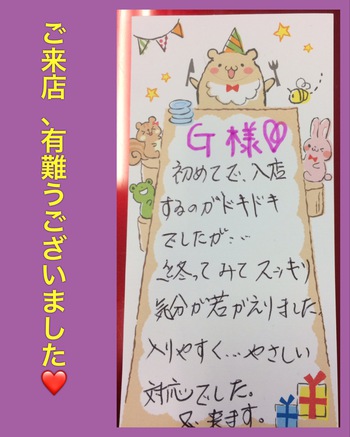 ご来店、有難うございました❤️
G様♡
初めてで、入店
するのがドキドキ
でしたが…
終ってみてスッキリ
気分が若がえりました。
入りやすく…やさしい
対応でした。
又、来ます。